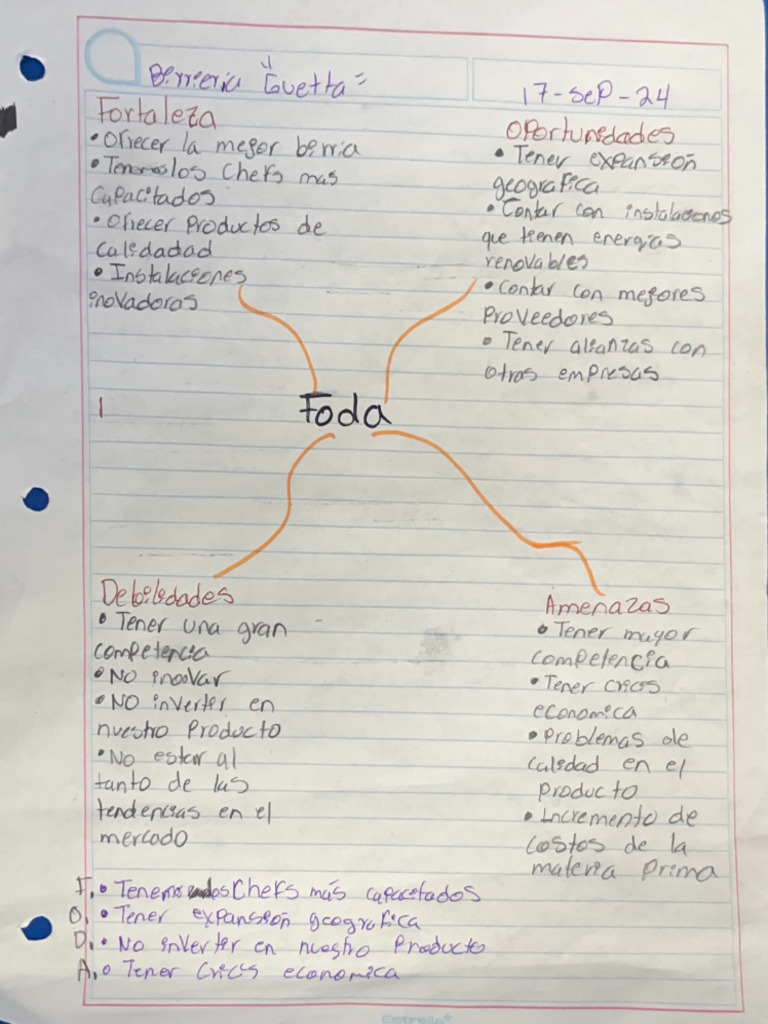 Birrieria "Guetta"
17-sep-24
Fortaleza
• Ofrecer la megor birria
• Tenemos los Chefs mas
Capacitados
• Ofrecer Productos de
calidadad
• Instalaciones
inovadoras
Oportunidades
• Tener expansión
geografica
• Contar con instalaciones
que tienen energias
renovables
• Contar con megores
Proveedores
• Tener alianzas con
otras empresas
Foda
Debilidades
• Tener una gran
competencia
• No inovar
• No inverter en
nuestro Producto
• No estar al
tanto de las
tendencias en el
mercado
Amenazas
• Tener mayor
competencia
• Tener crics
economica
• Problemas de
Calidad en el
Producto
• Incremento de
costos de la
materia Prima
F. • Tenemos los Chefs más capacitados
O. • Tener expansión geografica
D. • No inverter en nuestro Producto
A. • Tener Crics economica
Estrella